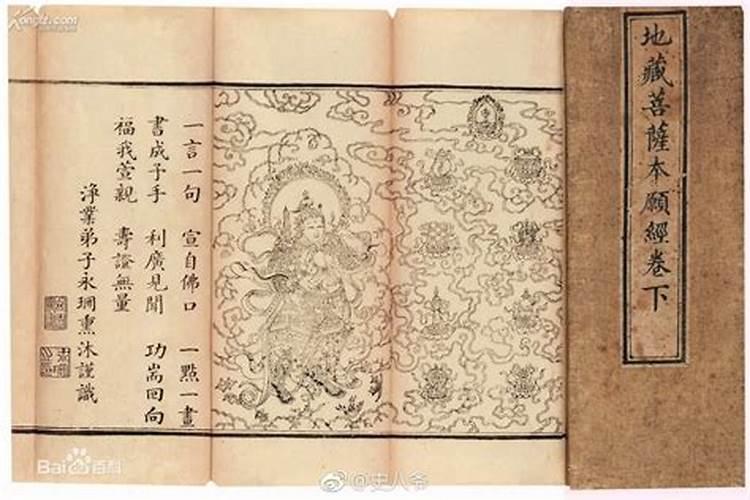 Kongfz.com
地藏菩薩本願經卷下
一言一句 宣自佛口 一點一畫
書成予手 利廣見聞 功耑回向
福我萱親 壽證無量
淨業弟子永 熏沐謹識
Bai百科
@史人爷